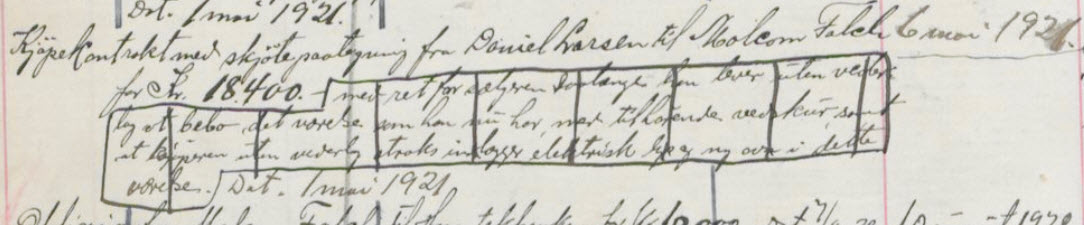 Dat. 1 mai 1921.
Kjøpekontrakt med skjøtepaategning fra Daniel Larsen til Molcom Falch 6 mai 1921.
for Kr. 18.400.- med ret for sælgeren saalænge han lever uten veder-
lag at bebo det værelse som han nu har, med tilhørende vedskur samt
at kjøperen uten vederlag straks indlægger elektrisk lys og ny ovn i dette
værelse. Dat. 1 mai 1921
Falch til